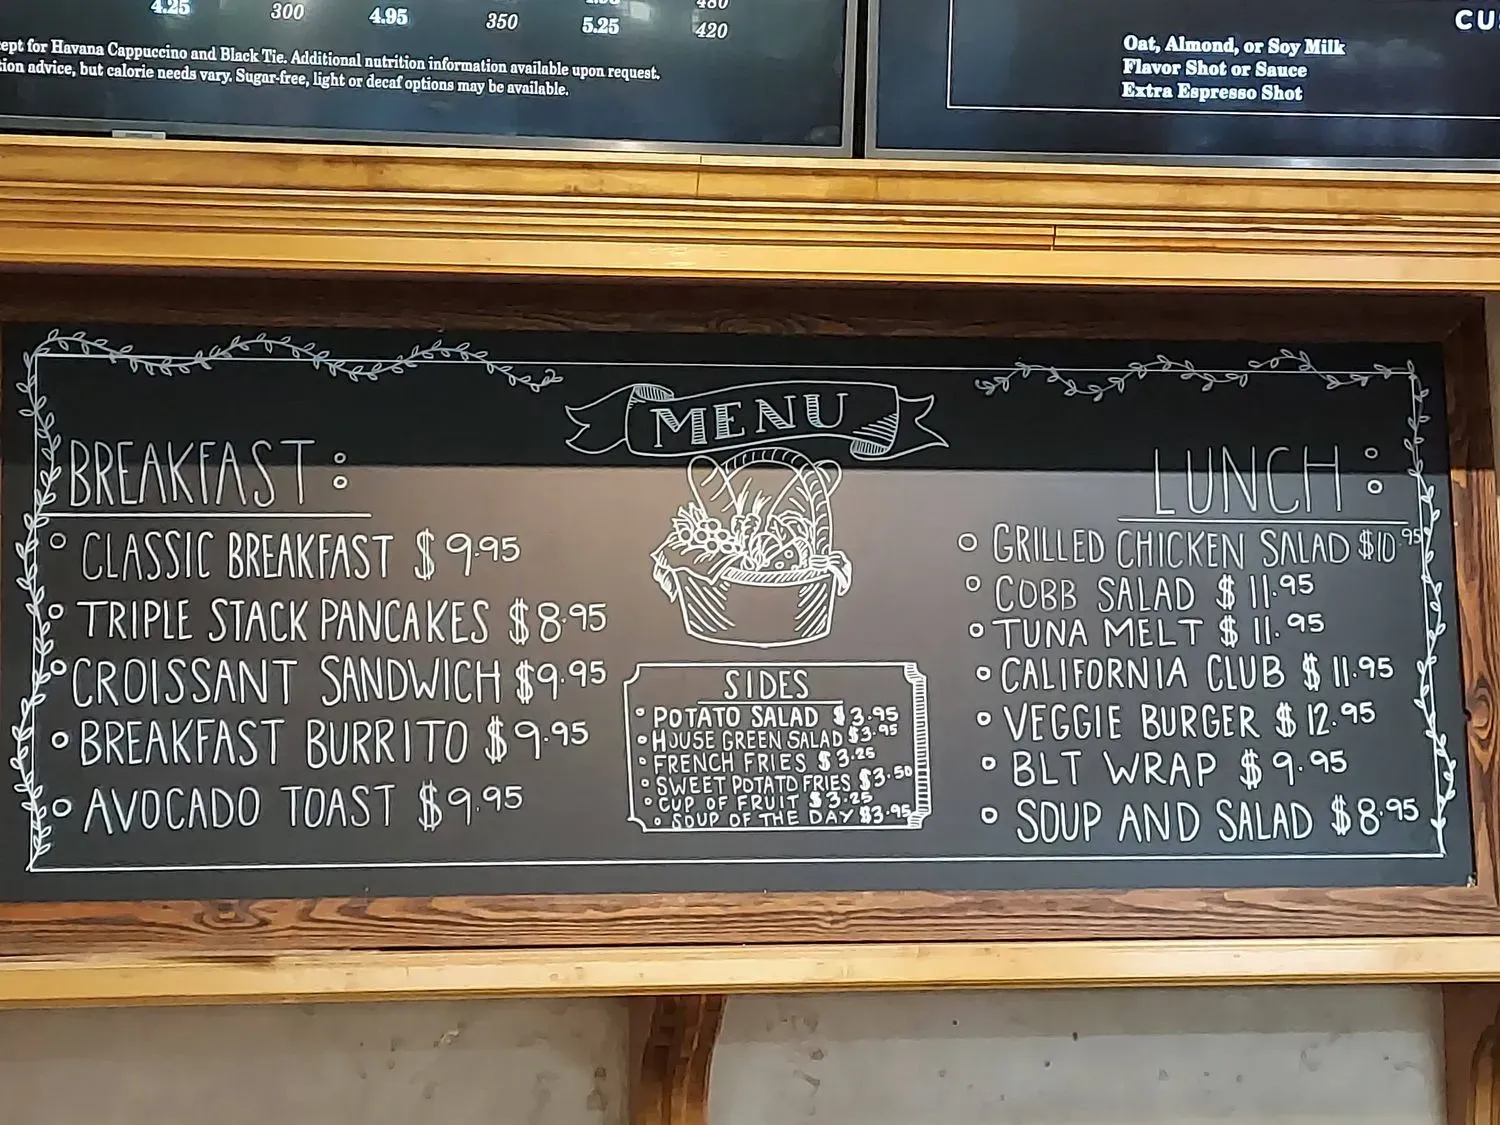 4.25 300 4.95 350 5.25 420
ept for Havana Cappuccino and Black Tie. Additional nutrition information available upon request.
ion advice, but calorie needs vary. Sugar-free, light or decaf options may be available.
Oat, Almond, or Soy Milk
Flavor Shot or Sauce
Extra Espresso Shot
MENU
BREAKFAST:
CLASSIC BREAKFAST $9.95
TRIPLE STACK PANCAKES $8.95
CROISSANT SANDWICH $9.95
BREAKFAST BURRITO $9.95
AVOCADO TOAST $9.95
SIDES
POTATO SALAD $3.95
HOUSE GREEN SALAD $3.95
FRENCH FRIES $3.25
SWEET POTATO FRIES $3.50
CUP OF FRUIT $3.25
SOUP OF THE DAY $3.95
LUNCH:
GRILLED CHICKEN SALAD $10.95
COBB SALAD $11.95
TUNA MELT $11.95
CALIFORNIA CLUB $11.95
VEGGIE BURGER $12.95
BLT WRAP $9.95
SOUP AND SALAD $8.95